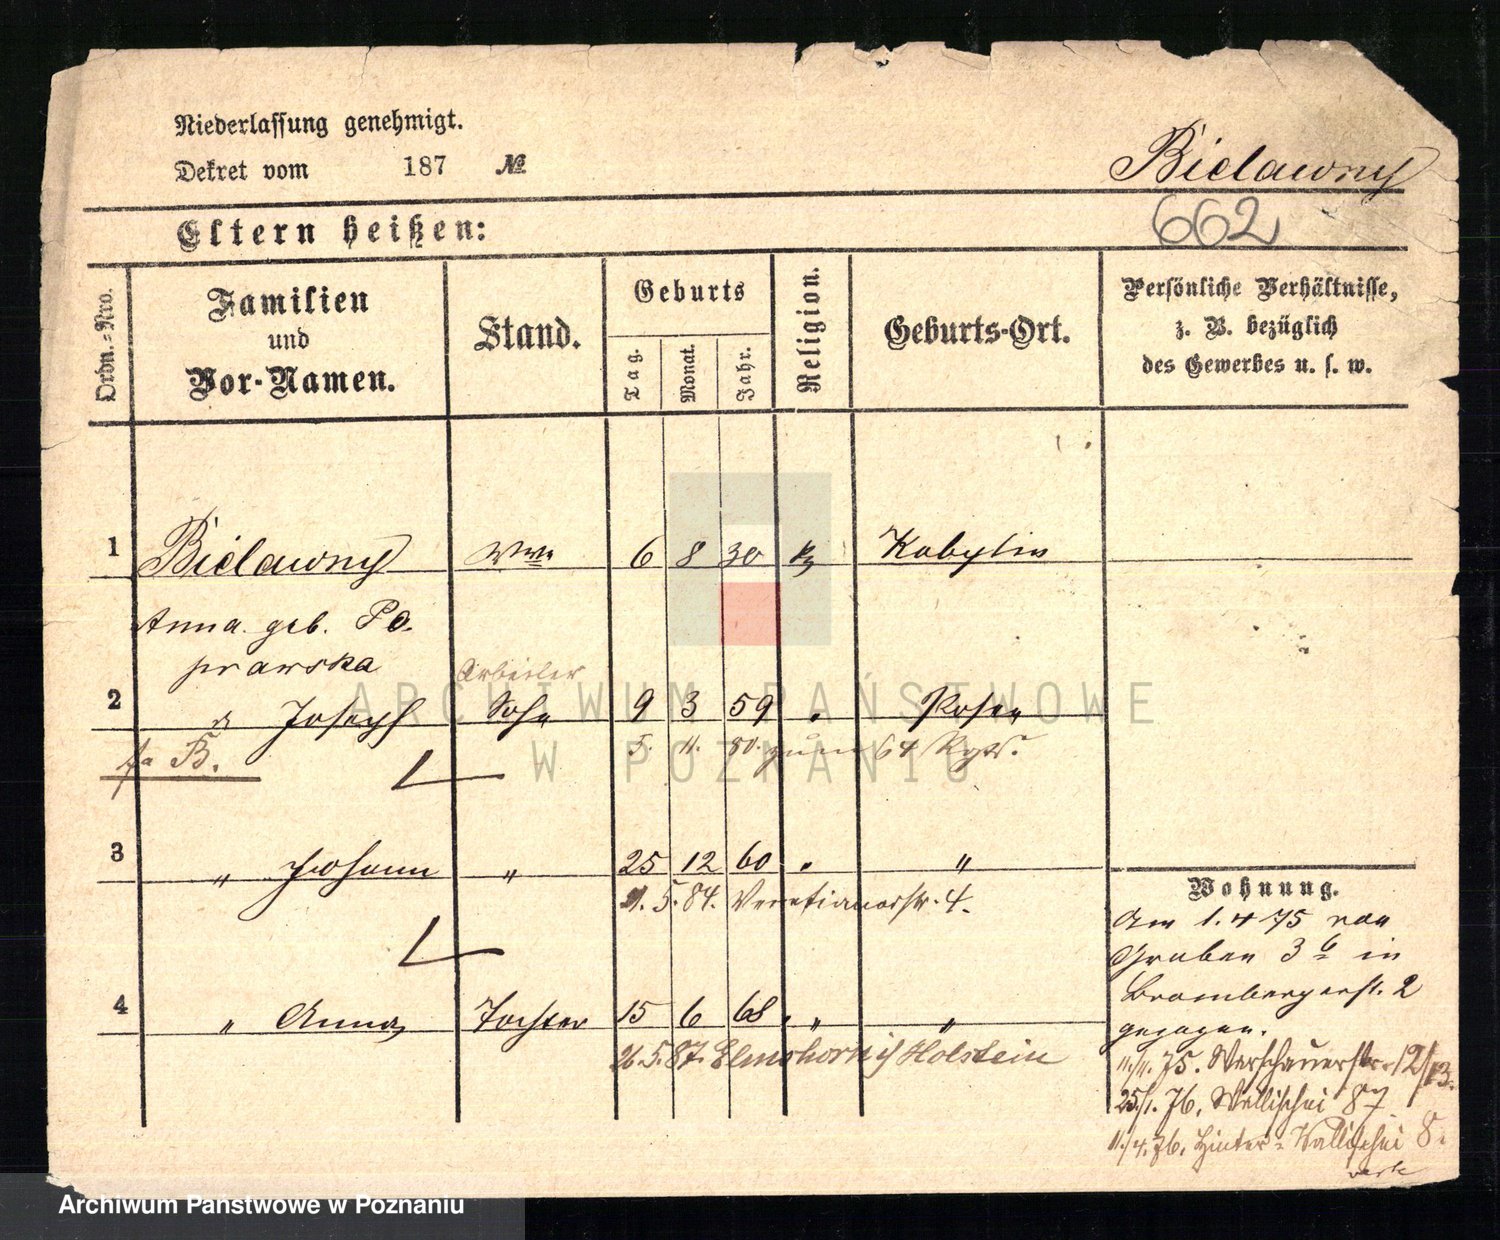 Niederlassung genehmigt.
Dekret vom 187 №
Bielawny
662
Eltern heißen:
Ordn.-Nro.
Familien
und
Vor-Namen.
Stand.
Geburts
Tag.
Monat.
Jahr.
Religion.
Geburts-Ort.
Persönliche Verhältnisse,
z. B. bezüglich
des Gewerbes u. s. w.
1 Bielawny Wwe 6 8 30 Kobylin
Anna geb. Po-
prawska
Arbeiter
2 Joseph Sohn 9 3 59 Posen
5. 11. 80. zum 64 Rgt.
B.
3 " Johann " 25 12 60 "
21. 5. 84. Venetianerstr. 4.
4 " Anna Tochter 15 6 68 " "
26. 5. 87. Elmshorn i/ Holstein
Wohnung.
Am 1. 4 75 von
Graben 3 b in
Brombergerstr. 2
gezogen.
11./11. 75. Warschauerstr. 12/13.
25./1. 76. Wallischei 87
11./4. 76. Hinter-Wallischei 8.
ARCHIWUM PAŃSTWOWE
W POZNANIU
Archiwum Państwowe w Poznaniu